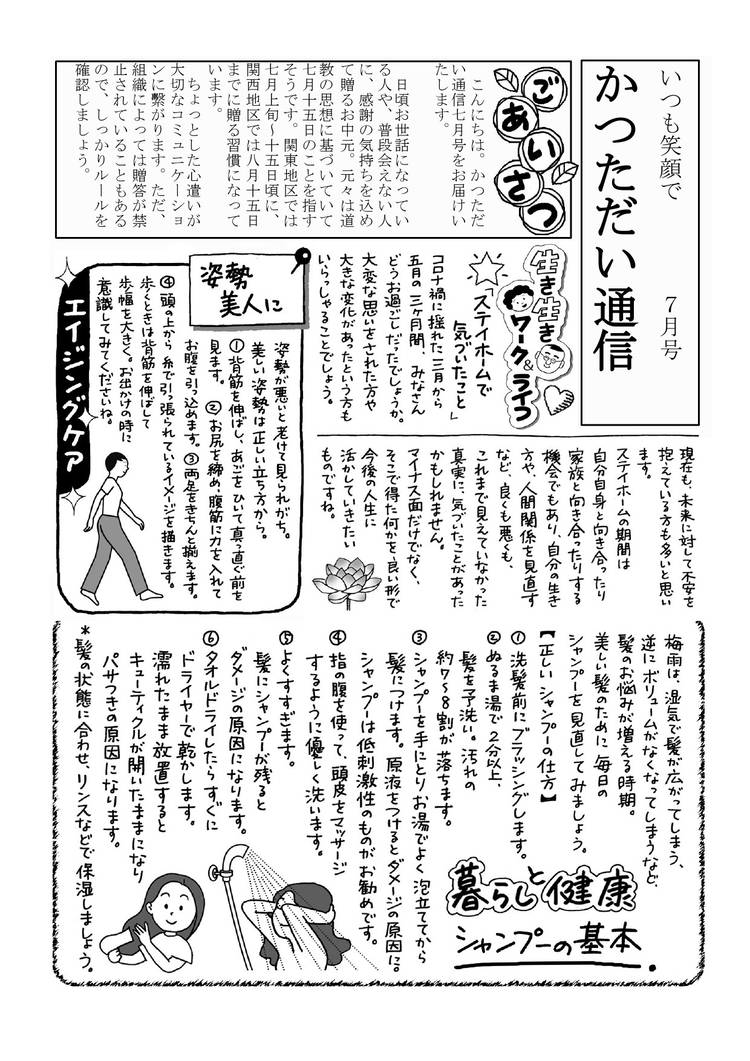 いつも笑顔で
7月号
かつただい通信
ごあいさつ
こんにちは。かつただ
い通信七月号をお届けい
たします。
日頃お世話になってい
る人や、普段会えない人
に、感謝の気持ちを込め
て贈るお中元。元々は道
教の思想に基づいていて
七月十五日のことを指す
そうです。関東地区では
七月上旬~十五日頃に、
関西地区では八月十五日
までに贈る習慣になって
います。
ちょっとした心遣いが
大切なコミュニケーショ
ンに繋がります。ただ、
組織によっては贈答が禁
止されていることもある
ので、しっかりルールを
確認しましょう。
生き生き
ワーク&ライフ
ステイホームで
気づいたこと」
コロナ禍に揺れた三月から
五月の三ヶ月間、みなさん
どうお過ごしだったでしょうか。
大変な思いをされた方や
大きな変化があったという方も
いらっしゃることでしょう。
現在も、未来に対して不安を
抱えている方も多いと思い
ます。
ステイホームの期間は
自分自身と向き合ったり
家族と向き合ったりする
機会でもあり、自分の生き
方や、人間関係を見直す
など、良くも悪くも、
これまで見えていなかった
真実に、気づいたことがあった
かもしれません。
マイナス面だけでなく、
そこで得た何かを、良い形で
今後の人生に
活かしていきたい
ものですね。
姿勢
美人に
姿勢が悪いと老けて見られがち。
美しい姿勢は正しい立ち方から。
①背筋を伸ばし、あごをひいて真っ直ぐ前を
見ます。②お尻を締め腹筋に力を入れて
お腹を引っ込めます。③両足をきちんと揃えます。
④頭の上から糸で引っ張られているイメージを描きます。
歩くときは背筋を伸ばして
歩幅を大きく。お出かけの時に
意識してみてくださいね。
エイジングケア
暮らしと健康
シャンプーの基本
梅雨は、湿気で髪が広がってしまう、
逆にボリュームがなくなってしまうなど、
髪のお悩みが増える時期。
美しい髪のために毎日の
シャンプーを見直してみましょう。
【正しいシャンプーの仕方】
①洗髪前にブラッシングします。
②ぬるま湯で2分以上、
髪を予洗い。汚れの
約7~8割が落ちます。
③シャンプーを手にとりお湯でよく泡立ててから
髪につけます。原液をつけるとダメージの原因に。
シャンプーは低刺激性のものがお勧めです。
④指の腹を使って、頭皮をマッサージ
するように優しく洗います。
⑤よくすすぎます。
髪にシャンプーが残ると
ダメージの原因になります。
⑥タオルドライしたらすぐに
ドライヤーで乾かします。
濡れたまま放置すると
キューティクルが開いたままになり
パサつきの原因になります。
*髪の状態に合わせ、リンスなどで保湿しましょう。